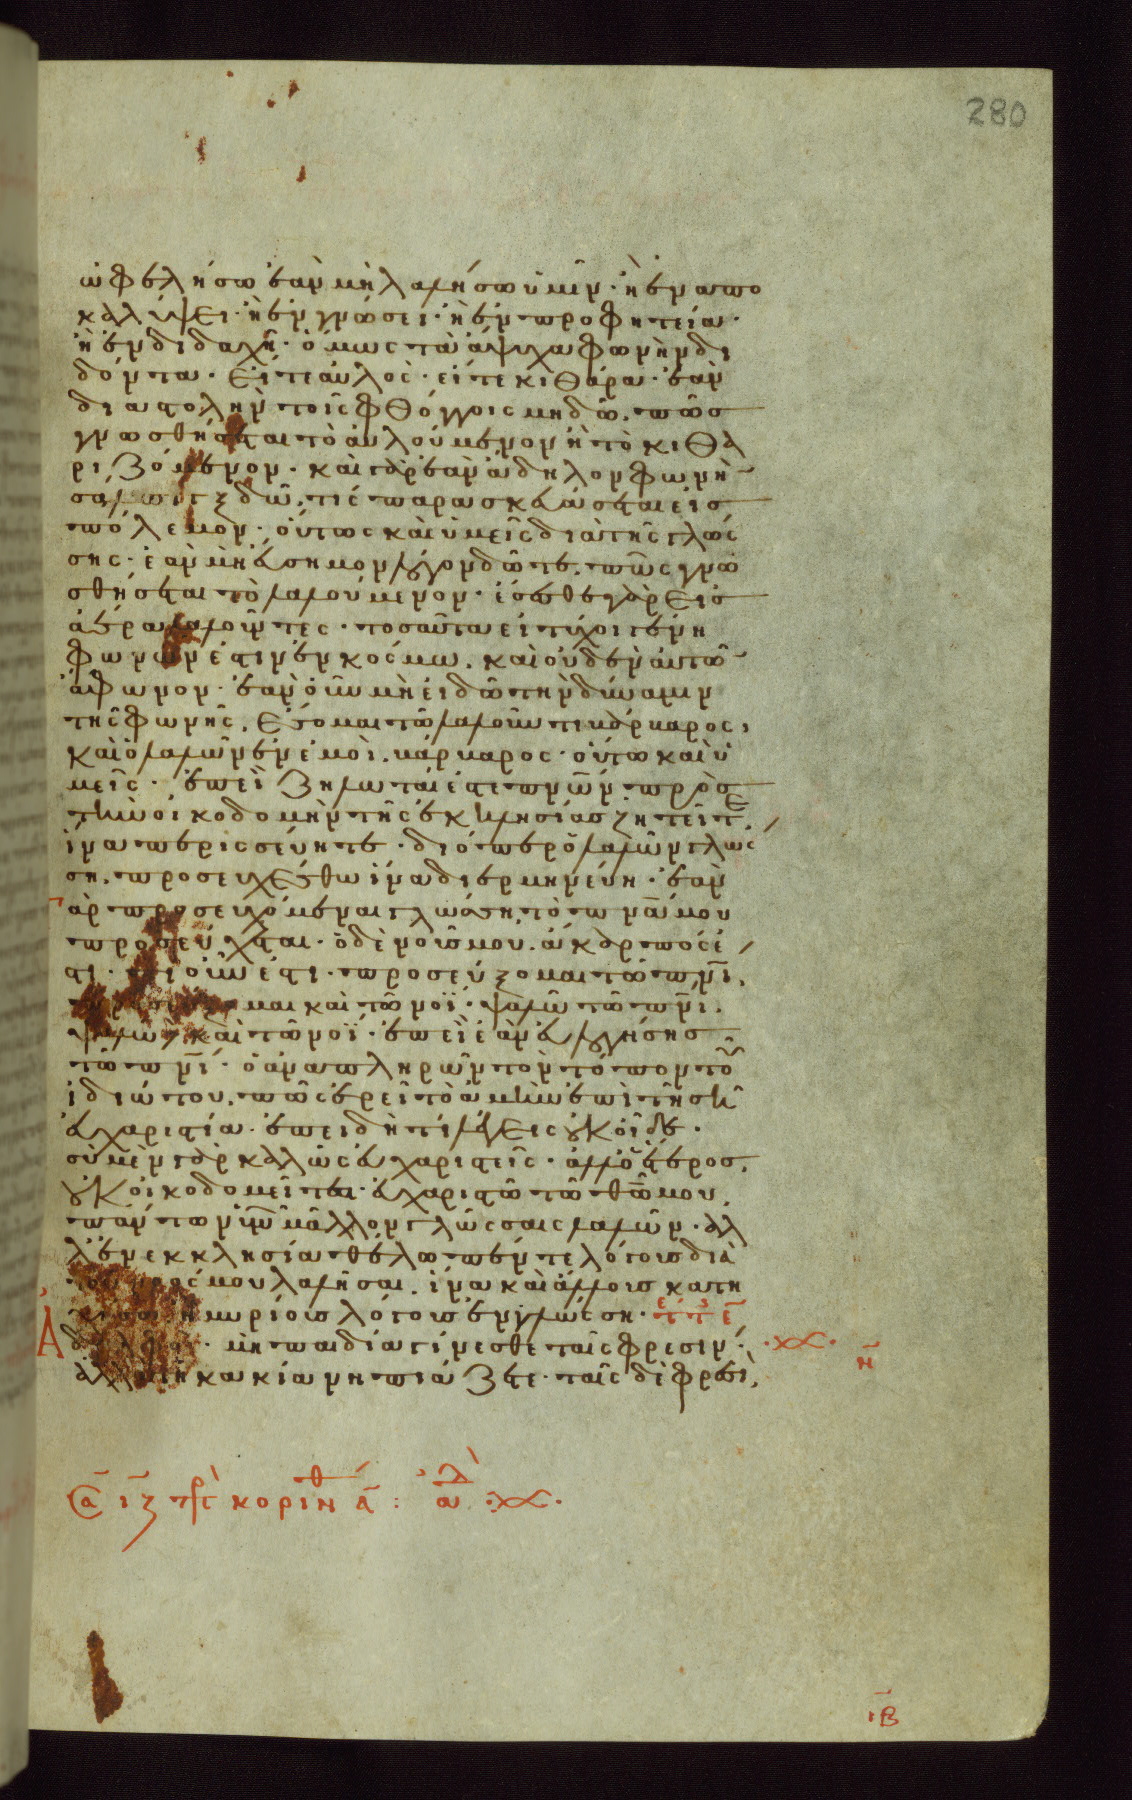 280
ὠφελήσω ἐὰν μὴ λαλήσω ὑμῖν· ἢ ἐν ἀπο
καλύψει· ἢ ἐν γνώσει· ἢ ἐν προφητεία·
ἢ ἐν διδαχῆ· ὅμως τὰ ἄψυχα φωνὴν δι
δόντα· εἴτε αὐλὸς· εἴτε κιθάρα· ἐὰν
διαστολὴν τοῖς φθόγγοις μὴ δῶ. πῶς
γνωσθήσεται τὸ αὐλούμενον ἢ τὸ κιθα
ριζόμενον· καὶ γὰρ ἐὰν ἄδηλον φωνὴν
σάλπιγξ δῶ. τίς παρασκευάσεται εἰς
πόλεμον· οὕτως καὶ ὑμεῖς διὰ τῆς γλώσ
σης· ἐὰν μὴ εὔσημον λόγον δῶτε. πῶς γνω
σθήσεται τὸ λαλούμενον· ἔσεσθε γὰρ εἰς
ἀέρα λαλοῦντες· τοσαῦτα εἰ τύχοι γένη
φωνῶν ἐστιν ἐν κόσμω. καὶ οὐδὲν αὐτῶν
ἄφωνον· ἐὰν οὖν μὴ εἰδῶ τὴν δύναμιν
τῆς φωνῆς. ἔσομαι τῶ λαλοῦντι βάρβαρος,
καὶ ὁ λαλῶν ἐν ἐμοὶ. βάρβαρος· οὕτω καὶ ὑ
μεῖς· ἐπεὶ ζηλωταί ἐστε πνῶν. πρὸς
τὴν οἰκοδομὴν τῆς ἐκκλησίας ζητεῖτε.
ἵνα περισσεύητε· διόπερ ὁ λαλῶν γλώσ
ση. προσευχέσθω ἵνα διερμηνεύη· ἐὰν
γὰρ προσεύχωμαι γλώσση, τὸ πνᾶ μου
προσεύχεται· ὁ δὲ νοῦς μου. ἄκαρπός ἐ
στι· τί οὖν ἐστι· προσεύξομαι τῶ πνι.
προσεύξομαι καὶ τῶ νοΐ· ψαλῶ τῶ πνι.
ψαλῶ καὶ τῶ νοΐ· ἐπεὶ ἐὰν εὐλογήσης
τῶ πνι· ὁ ἀναπληρῶν τὸν τόπον τοῦ
ἰδιώτου. πῶς ἐρεῖ τὸ ἀμὴν ἐπὶ τῆ σῆ
εὐχαριστία· ἐπειδὴ τί λέγεις οὐκ οἶδε·
σὺ μὲν γὰρ καλῶς εὐχαριστεῖς· ἀλλ' ὁ ἕτερος.
οὐκ οἰκοδομεῖται· εὐχαριστῶ τῶ θῶ μου.
πάντων ὑμῶν μᾶλλον γλώσσαις λαλῶν· ἀλ
λ' ἐν ἐκκλησία θέλω πέντε λόγους διὰ
τοῦ νοός μου λαλῆσαι. ἵνα καὶ ἄλλους κατη
χήσω ἢ μυρίους λόγους ἐν γλώσση·
Ἀδελφοί· μὴ παιδία γίνεσθε ταῖς φρεσίν·
ἀλλὰ τῆ κακία νηπιάζετε· ταῖς δὲ φρεσὶ,
ιζ πρ κορινθ α :
ιβ